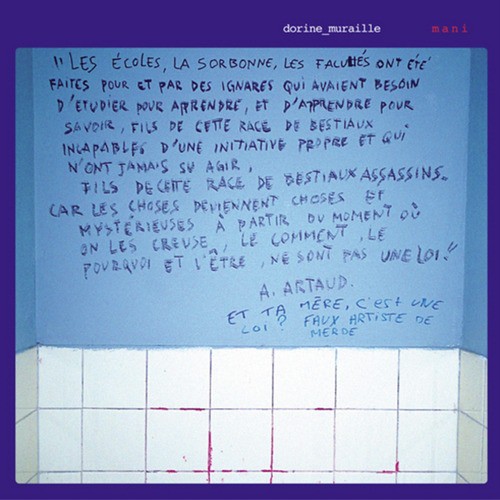 dorine_muraille mani
"LES ÉCOLES, LA SORBONNE, LES FACULTÉS ONT ÉTÉ
FAITES POUR ET PAR DES IGNARES QUI AVAIENT BESOIN
D'ÉTUDIER POUR APPRENDRE, ET D'APPRENDRE POUR
SAVOIR, FILS DE CETTE RACE DE BESTIAUX
INCAPABLES D'UNE INITIATIVE PROPRE ET QUI
N'ONT JAMAIS SU AGIR,
FILS DE CETTE RACE DE BESTIAUX ASSASSINS.
CAR LES CHOSES DEVIENNENT CHOSES ET
MYSTÉRIEUSES À PARTIR DU MOMENT OÙ
ON LES CREUSE, LE COMMENT, LE
POURQUOI ET L'ÊTRE, NE SONT PAS UNE LOI!"
A. ARTAUD.
ET TA MÈRE, C'EST UNE
LOI? FAUX ARTISTE DE
MERDE